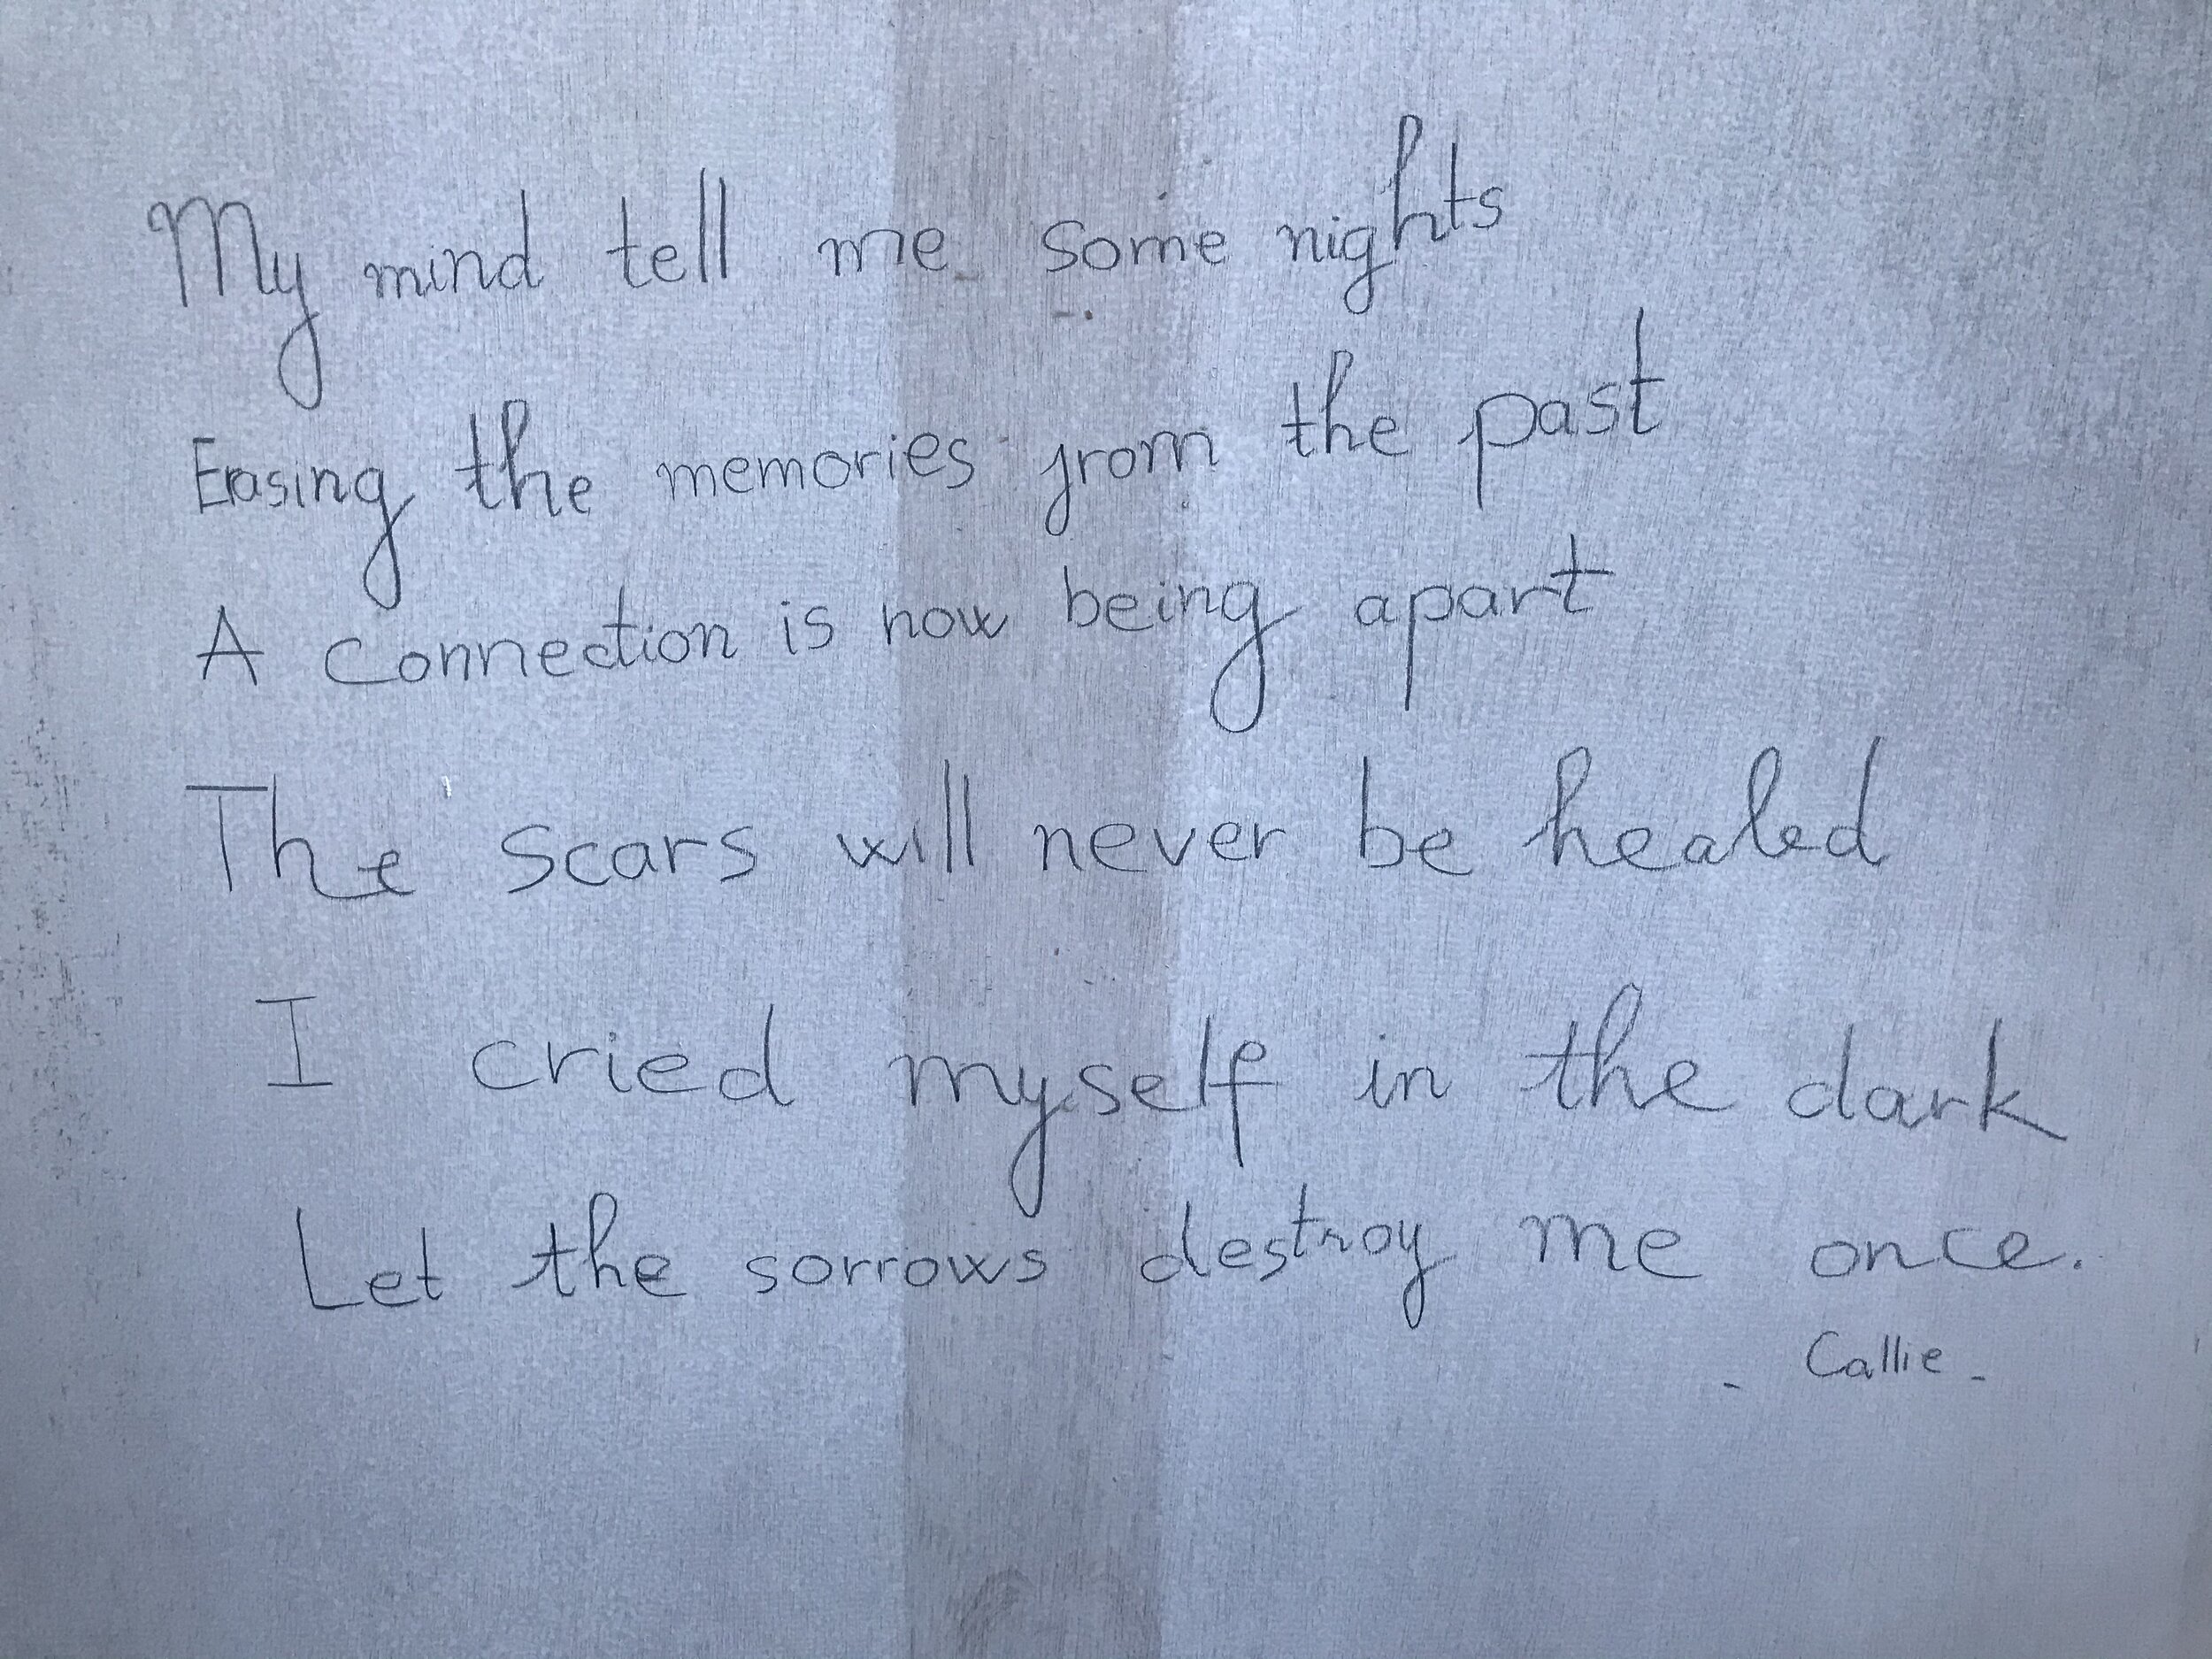 My mind tell me some nights
Erasing the memories from the past
A connection is now being apart
The scars will never be healed
I cried myself in the dark
Let the sorrows destroy me once.
- Callie -